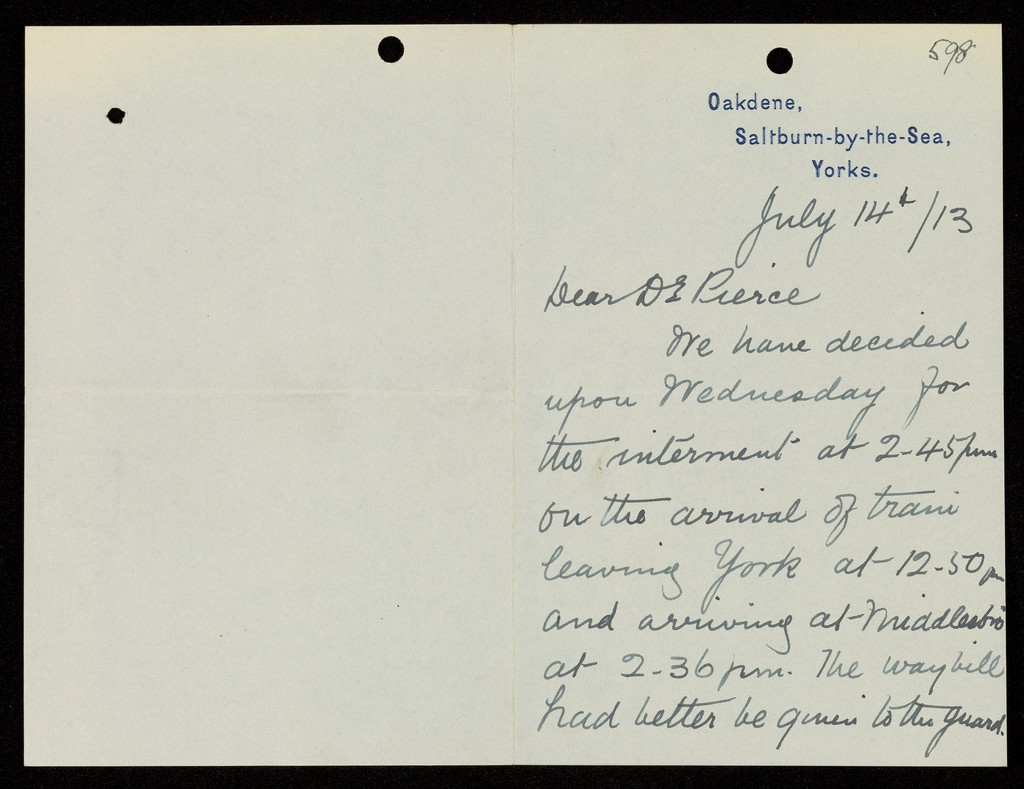 598
Oakdene,
Saltburn-by-the-Sea,
Yorks.
July 14th/13
Dear Dr Pierce
We have decided
upon Wednesday for
the interment at 2-45 pm
on the arrival of train
leaving York at 12-50 pm
and arriving at Middlesbro
at 2-36 pm. The waybill
had better be given to the guard.